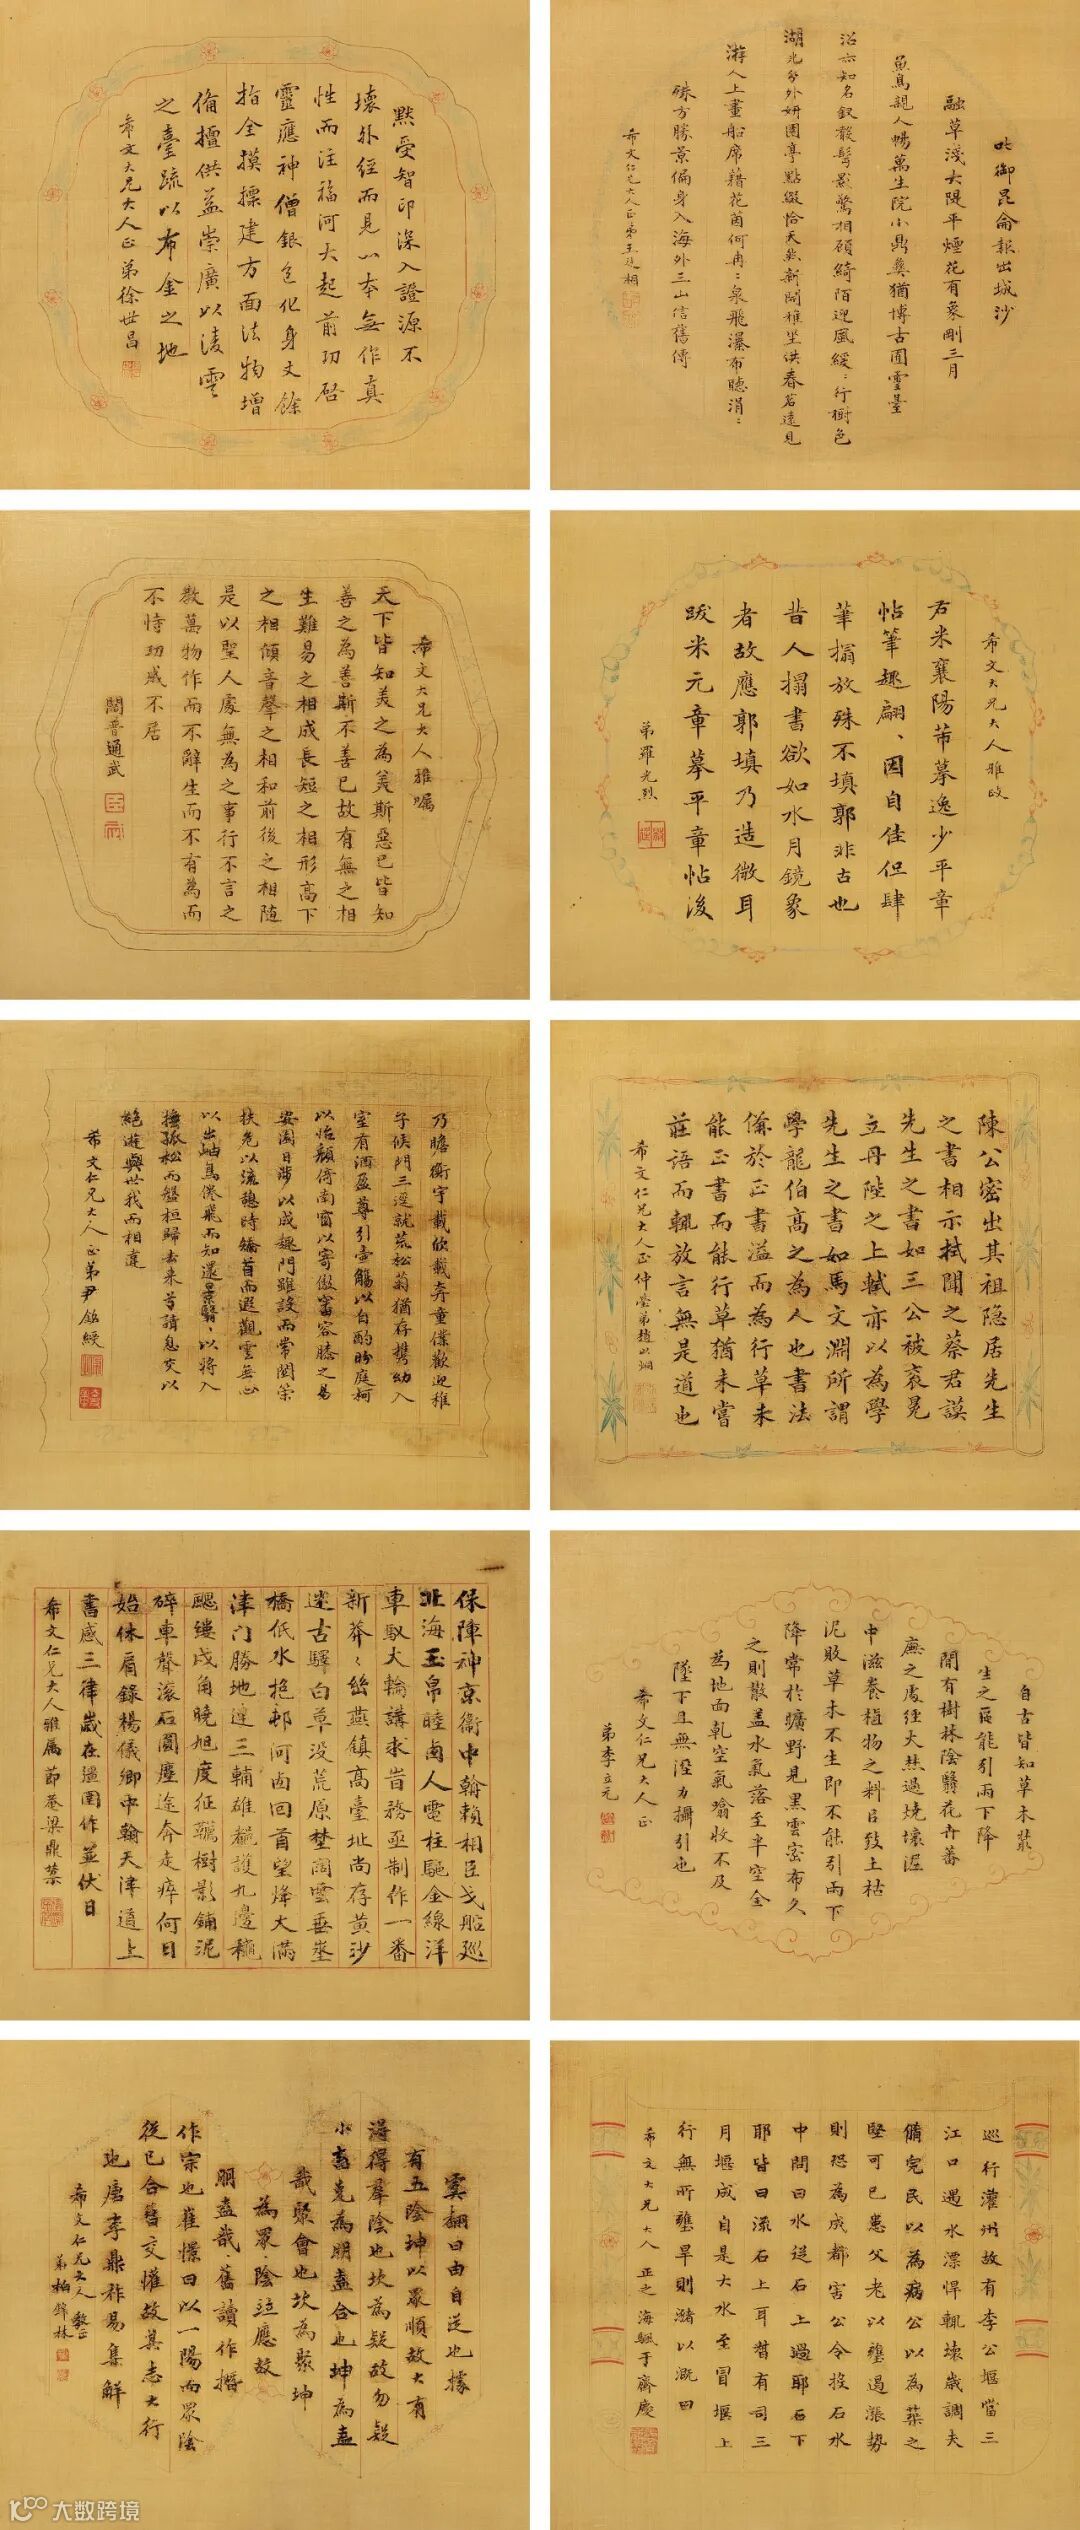 默受智印深入證源不
壞外經而見以本無作真
性而注福河大起前功啓
靈應神僧銀色化身丈餘
指全摸摽建方面法物增
脩擅供益崇廣以淩雲
之臺疏以布金之地
希文大兄大人正弟徐世昌
吐御昆侖報出城沙
融草淺大隄平煙花有象剛三月
魚鳥親人暢萬生院小鼎彝猶博古囿靈臺
沼亦知名釵鬢髩影驚相顧綺陌迎風緩緩行樹色
湖光分外妍園亭點綴恰天然新開稚坐供春茗遠見
游人上畫船席藉花茵何冉冉泉飛瀑布聽涓涓
殊方勝景偏身入海外三山信舊傳
希文仁兄大人正弟王
希文大兄大人雅屬
天下皆知美之為美斯惡已皆知
善之為善斯不善已故有無之相
生難易之相成長短之相形高下
之相傾音聲之相和前後之相隨
是以聖人處無為之事行不言之
教萬物作而不辭生而不有為而
不恃功成不居
闊普通武
希文大兄大人雅政
右米襄陽芾摹逸少平章
帖筆趣翩翩因自佳但肆
筆搨放殊不填郭非古也
昔人搨書欲如水月鏡象
者故應郭填乃造微耳
跋米元章摹平章帖後
弟羅光烈
乃瞻衡宇載欣載奔童僕歡迎稚
子候門三逕就荒松菊猶存攜幼入
室有酒盈尊引壺觴以自酌眄庭柯
以怡顏倚南窗以寄傲審容膝之易
安園日涉以成趣門雖設而常關策
扶老以流憩時矯首而遐觀雲無心
以出岫鳥倦飛而知還景翳翳以將入
撫孤松而盤桓歸去來兮請息交以
絕遊與世我而相違
希文仁兄大人正弟尹銘綬
陳公密出其祖隐居先生
之書相示軾聞之蔡君謨
先生之書如三公被衮冕
立丹陛之上軾亦以為學
先生之書如馬文淵所謂
學龍伯高之為人也書法
俻於正書溢而為行草未
能正書而能行草猶未嘗
莊語而輒放言無是道也
希文仁兄大人正仲瑩弟趙以炯
保障神京衛中翰賴相臣戈船巡
北海玉帛睦鹵人電柱驅金線洋
車馭大輪講求旹務亟制作一番
新莽莽幽燕鎮高臺址尚存黄沙
迷古驛白草沒荒原埜闊雲垂壂
橋低水抱邨河鹵回首望烽火滿
津門勝地連三輔雄襟護九邊穐
颸縷戍角曉旭度征韉樹影鋪泥
碎車聲滚石圓塵途奔走瘁何日
始休肩錄楊儀卿中翰天津道上
書感三律歲在彊圉作並伏日
希文仁兄大人雅属節菴梁鼎棻
自古皆知草木叢
生之區能引雨下降
間有樹林陰翳花卉蕃
廡之處經大焘過燒壞溼
中滋養植物之料因致土枯
泥敗草木不生即不能引雨下
降常於曠野見黑雲密布久
之則散蓋水氣落至半空全
為地面乾空氣翕收不及
墜下且無溼力攝引也
希文仁兄大人正
弟李立元
虞翻曰由自從也據
有五陰坤以眾順故大有
得得羣陰也坎為疑故勿疑
小畜兌為朋盍合也坤為盍
哉聚會也坎為聚坤
為眾眾陰竝應故
朋盍哉哉舊讀作撍
作宗也崔憬曰以一陽而眾陰
從已合簪交懽故其志大行
也唐李鼎祚易集解
希文仁兄大人
弟柏錦林
巡行灌州故有李公堰當三
江口遇水漂悍輒壞歲調夫
備完民以為病公以為葉之
堅可已患父老以壅遏漲勢
則恐為成都害公令投石水
中問曰水從石上過耶石下
耶皆曰流石上耳暂有司三
月堰成自是大水至冒堰上
行無所壅旱則潴以溉田
希文大兄大人正之海颿于齊慶
大数跨境